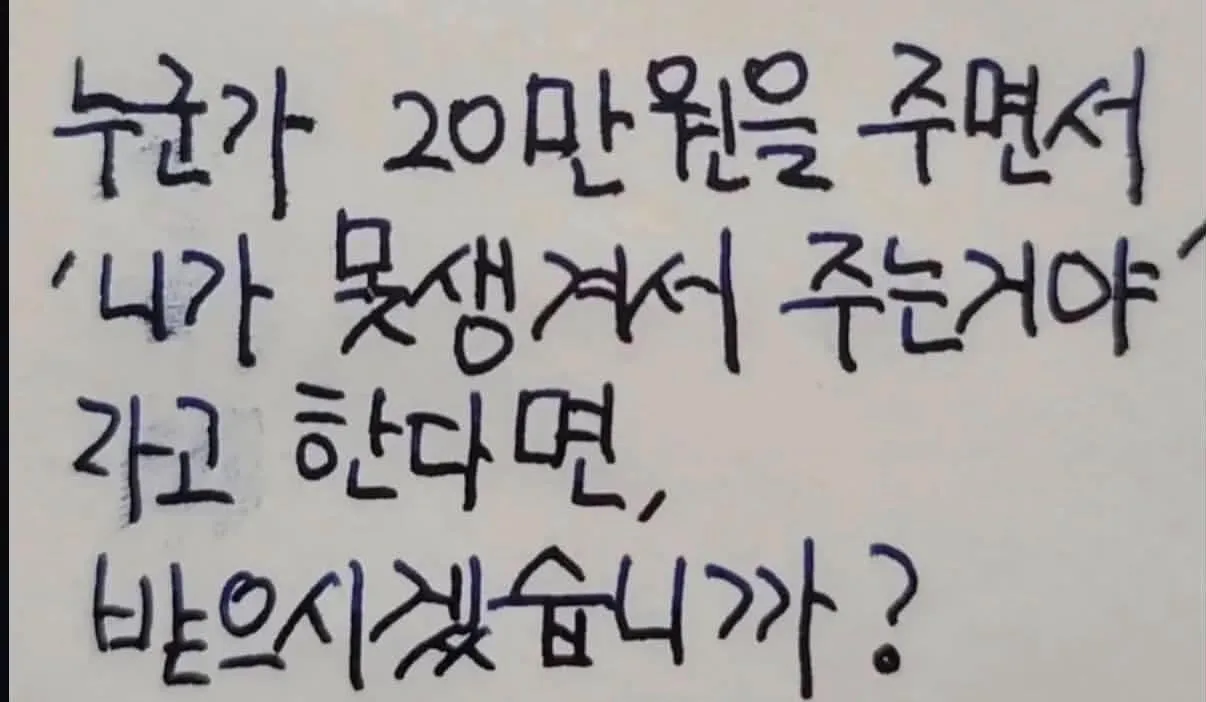 누군가 20만원을 주면서
'니가 못생겨서 주는거야'
라고 한다면,
받으시겠습니까?